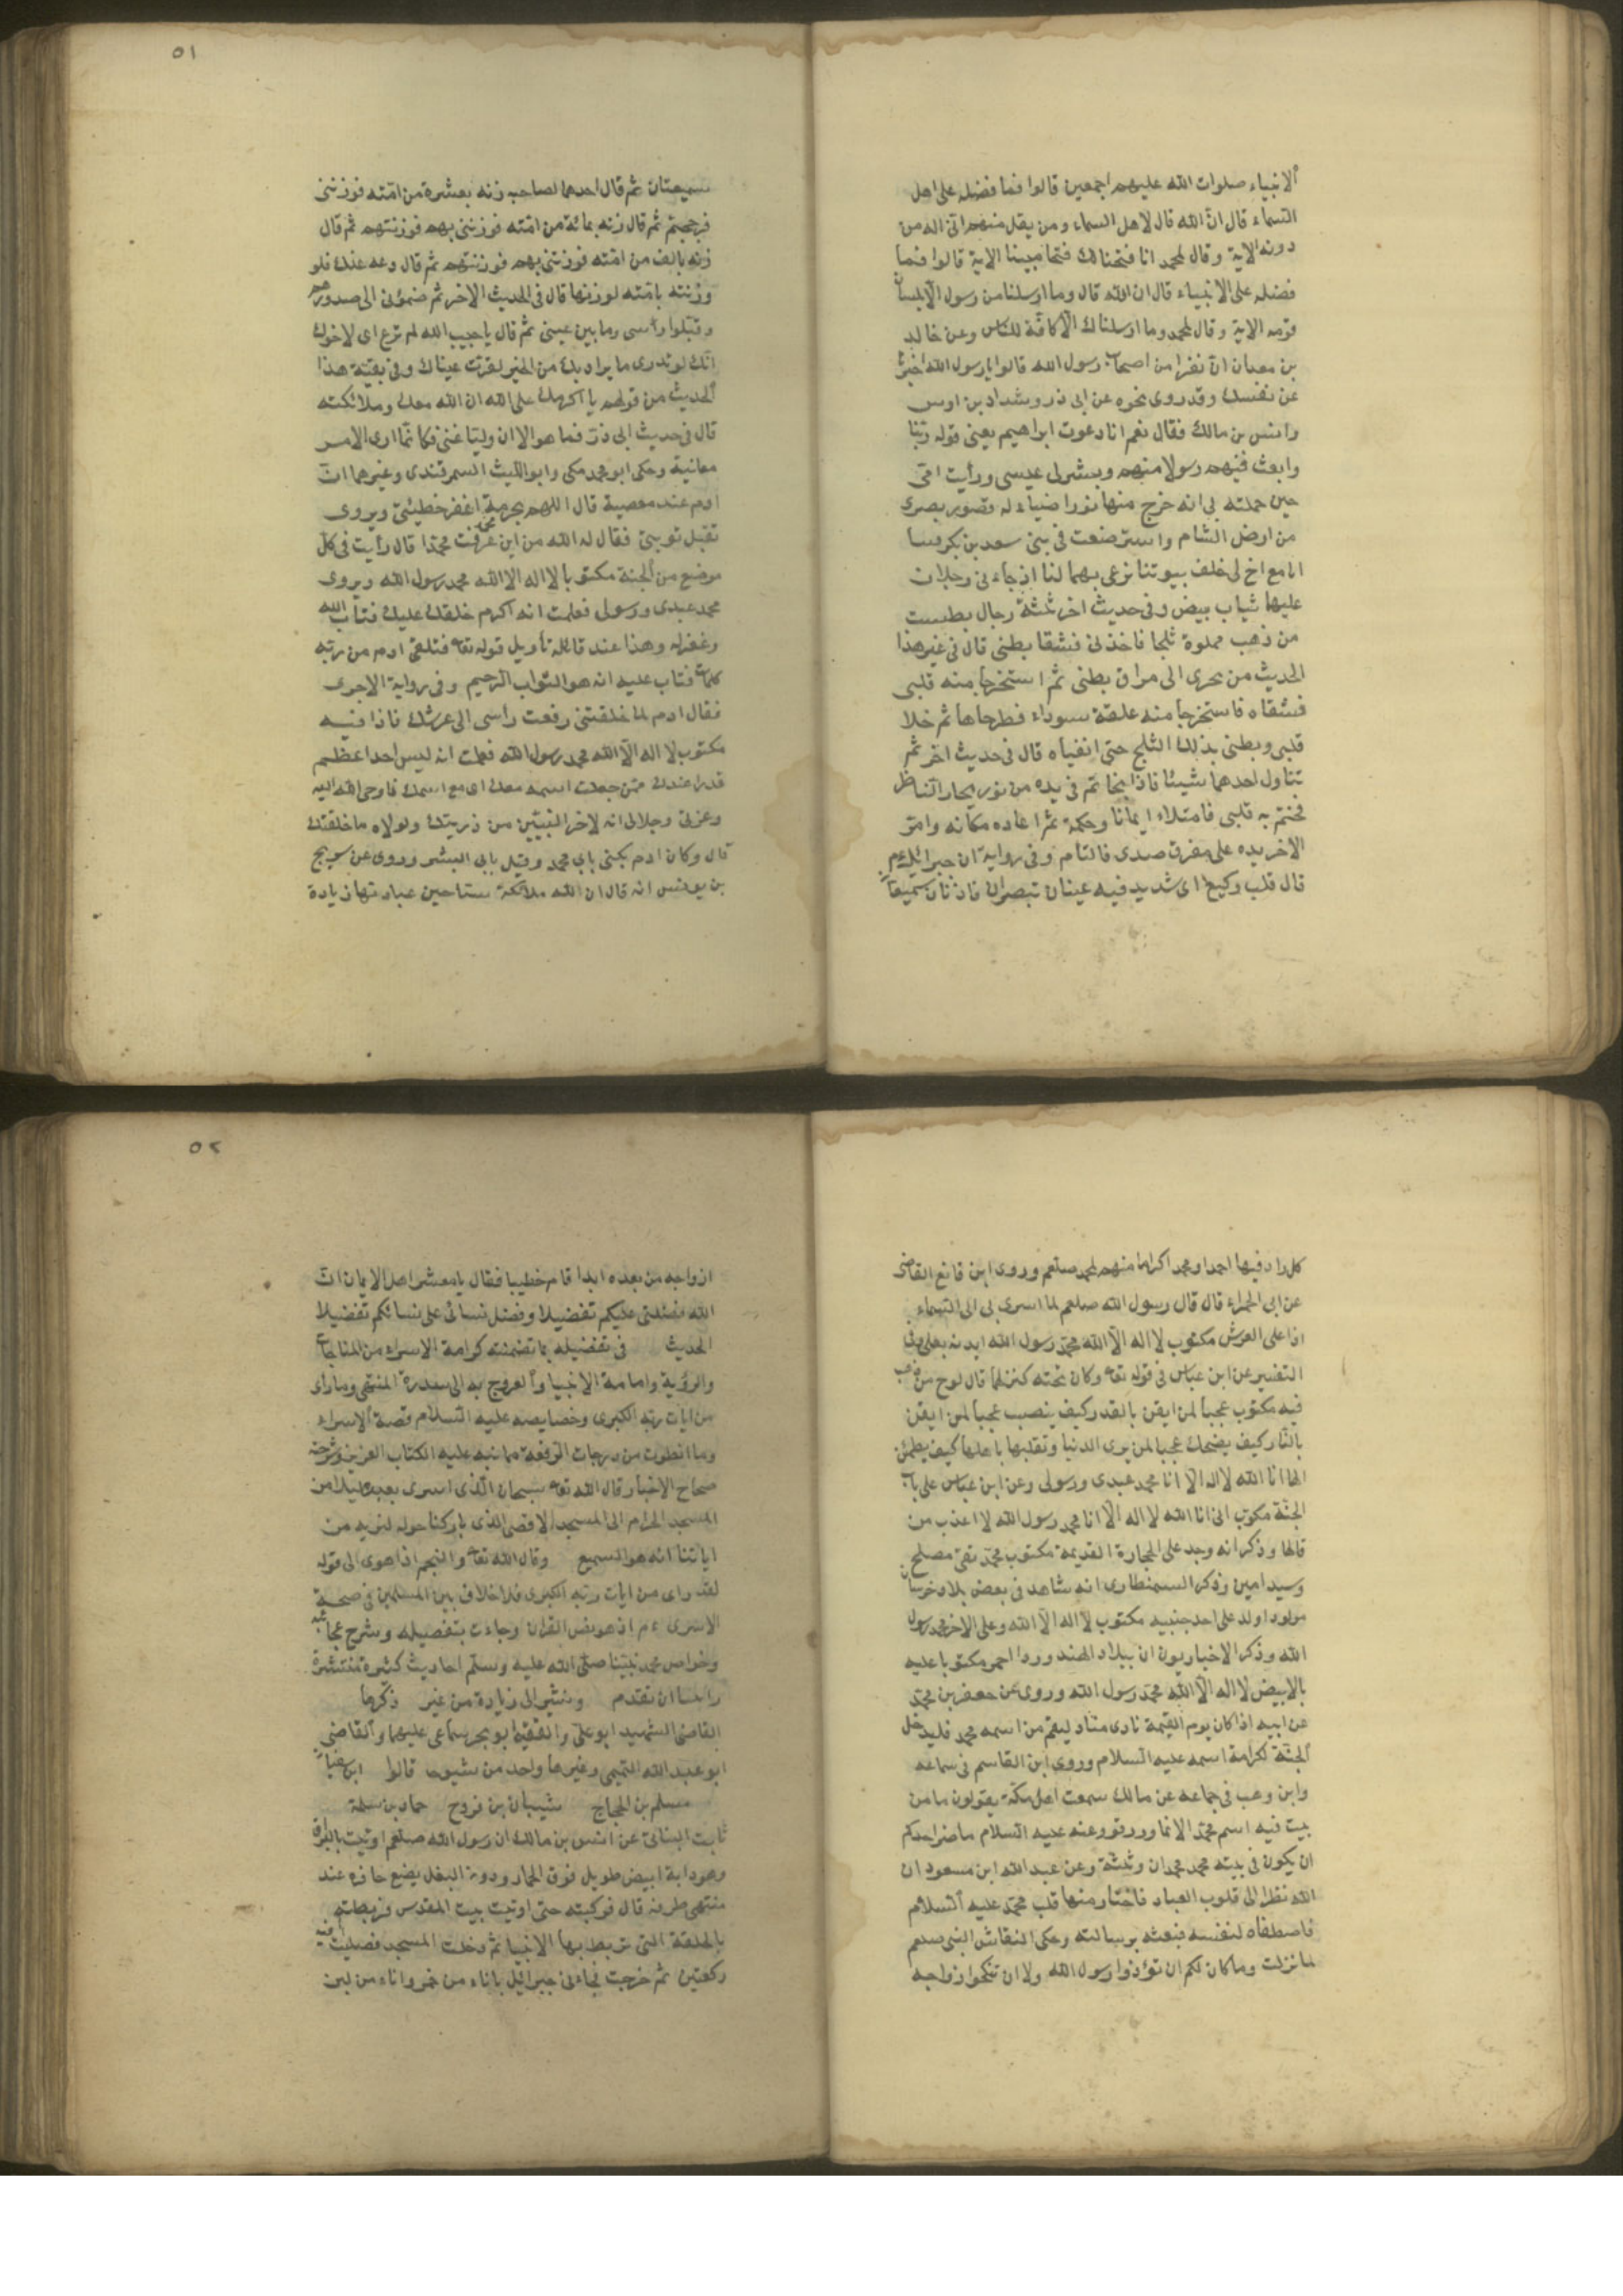 الانبياء صلوات الله عليهم اجمعين قالوا فما فضله على اهل
السماء قال ان الله قال لاهل السماء ومن يقل منهم انى اله من
دونه الاية وقال لمحمد انا فتحنا لك فتحا مبينا الاية قالوا فما
فضله على الانبياء قال ان الله قال وما ارسلنا من رسول الا بلسان
قومه الاية وقال لمحمد وما ارسلناك الا كافة للناس وعن خالد
بن معدان ان نفرا من اصحاب رسول الله قالوا يا رسول الله اخبرنا
عن نفسك وقد روى نحوه عن ابى ذر وشداد بن اوس
وانس بن مالك فقال نعم انا دعوت ابراهيم يعنى قوله ربنا
وابعث فيهم رسولا منهم وبشر لى عيسى ورأيت امى
حين حملته بى انه خرج منها نورا ضياء له قصور بصرى
من ارض الشام واسترضعت فى بنى سعد بن بكر فبينا
انا مع اخ لى خلف بيوتنا نرعى بهما لنا اذ جاءنى رجلان
عليها ثياب بيض وفى حديث اخر ثلثة رجال بطست
من ذهب مملوة ثلجا فاخذنى فشقا بطنى قال فى غير هذا
الحديث من نحرى الى مراق بطنى ثم استخرجا منه قلبى
فشقاه فاستخرجا منه علقة سوداء فطرحاها ثم غلا
قلبى وبطنى بذلك الثلج حتى انقياه قال فى حديث اخر ثم
تناول احدهما شيئا فاذا بخاتم فى يده من نور يحار الناظر
فختم به قلبى فامتلاء ايمانا وحكمة ثم اعاده مكانه وامر
الاخر يده على مفرق صدرى فالتام وفى رواية ان جبرائيل عم
قال قلب وكيع اى شديد فيه عينان تبصران واذنان سميعتان
٥١
سميعتان ثم قال احدهما لصاحبه زنه بعشرة من امته فوزننى
فرجحتهم ثم قال زنه بمائة من امته فوزننى بهم فوزنتهم ثم قال
زنه بالف من امته فوزننى بهم فوزنتهم ثم قال دعه عنك فلو
وزنته بامته لوزنها قال فى الحديث الاخر ثم ضمونى الى صدورهم
وقبلوا رأسى وما بين عينى ثم قال يا حبيب الله لم ترع اى لا خوف
انك لو تدرى ما يراد بك من الخير لقرت عيناك وفى بقية هذا
الحديث من قولهم ما اكرمك على الله ان الله معك وملائكته
قال فى حديث ابى ذر فما هو الا ان وليا عنى فكانما ارى الامر
معاينة وحكى ابو محمد مكى وابو الليث السمرقندى وغيرهما ان
ادم عند معصية قال اللهم بحرمة محمد اغفر خطيئتى ويروى
تقبل توبتى فقال له الله من اين عرفت محمدا قال رأيت فى كل
موضع من الجنة مكتوبا لا اله الا الله محمد رسول الله ويروى
محمد عبدى ورسولى فعلمت انه اكرم خلقك عليك فتاب الله
وغفر له وهذا عند قائله تأويل قوله تعا فتلقى ادم من ربه
كلمات فتاب عليه انه هو التواب الرحيم وفى رواية الاجرى
فقال ادم لما خلقتنى رفعت رأسى الى عرشك فاذا فيه
مكتوب لا اله الا الله محمد رسول الله فعلمت انه ليس احد اعظم
قدرا عندك ممن جعلت اسمه معك اى مع اسمك فاوحى الله اليه
وعزتى وجلالى انه لاخر النبيين من ذريتك ولولاه ما خلقتك
قال وكان ادم يكنى بابى محمد وقيل بابى البشر وروى عن سريج
بن يونس انه قال ان الله ملائكة سياحين عبادتها زيادة
كل دار فيها احمد او محمد اكراما منهم لمحمد صلعم وروى ابن قانع القاضى
عن ابى الحمراء قال قال رسول الله صلعم لما اسرى بى الى السماء
اذا على العرش مكتوب لا اله الا الله محمد رسول الله ايدته بعلى وفى
التفسير عن ابن عباس فى قوله تعا وكان تحته كنز لهما قال لوح من ذهب
فيه مكتوب عجبا لمن ايقن بالقدر كيف ينصب عجبا لمن ايقن
بالنار كيف يضحك عجبا لمن يرى الدنيا وتقلبها باهلها كيف يطمئن
الها انا الله لا اله الا انا محمد عبدى ورسولى وعن ابن عباس على باب
الجنة مكتوب انى انا الله لا اله الا انا محمد رسول الله لا اعذب من
قالها وذكر انه وجد على الحجارة القديمة مكتوب محمد تقى مصلح
وسيد امين وذكر السمنطارى انه شاهد فى بعض بلاد خرسان
مولودا ولد على احد جنبيه مكتوب لا اله الا الله وعلى الاخر محمد رسول
الله وذكر الاخباريون ان ببلاد الهند وردا احمر مكتوبا عليه
بالابيض لا اله الا الله محمد رسول الله وروى عن جعفر بن محمد
عن ابيه اذا كان يوم القيمة نادى مناد ليقم من اسمه محمد فليدخل
الجنة لكرامة اسمه عليه السلام وروى ابن القاسم فى سماعه
وابن وهب فى جامعه عن مالك سمعت اهل مكة يقولون ما من
بيت فيه اسم محمد الا نما ورزقو وعنه عليه السلام ما ضر احدكم
ان يكون فى بيته محمد محمدان وثلثة وعن عبد الله ابن مسعود ان
الله نظر الى قلوب العباد فاختار منها قلب محمد عليه السلام
فاصطفاه لنفسه فبعثه برسالته وحكى النقاش النبى صلعم
لما نزلت وما كان لكم ان تؤذوا رسول الله ولا ان تنكحوا ازواجه
٥٢
ازواجه من بعده ابدا قام خطيبا فقال يا معشر اهل الايمان ان
الله فضلنى عليكم تفضيلا وفضل نسائى على نسائكم تفضيلا
الحديث فى تفضيله بما تضمنته كرامة الاسراء من المناجات
والرؤية وامامة الانبيا والعروج به الى سدرة المنتهى وما راى
من ايات ربه الكبرى وخصايصه عليه السلام قصة الاسراء
وما انطوت من درجات الرفعة مما نبه عليه الكتاب العزيز وشرحته
صحاح الاخبار قال الله تعا سبحان الذى اسرى بعبده ليلا من
المسجد الحرام الى المسجد الاقصى الذى باركنا حوله لنريه من
اياتنا انه هو السميع وقال الله تعا والنجم اذا هوى الى قوله
لقد راى من ايات ربه الكبرى فلا خلاف بين المسلمين فى صحة
الاسرى عم اذ هو نص القران وجاءت بتفصيله وشرح عجائبه
وخواص محمد نبينا صلى الله عليه وسلم احاديث كثيرة منتشرة
راينا ان نقدم ونشير الى زيادة من غير ذكرها
القاضى الشهيد ابو على والفقيه ابو بحر سماعى عليهما والقاضى
ابو عبد الله التميمى وغيرها واحد من شيوحنا قالوا
مسلم بن الحجاج شيبان بن فروخ حماد بن سلمة
ثابت البنانى عن انس بن مالك ان رسول الله صلعم اوتيت بالبراق
وهو دابة ابيض طويل فوق الحمار ودون البغل يضع حافره عند
منتهى طرفه قال فركبته حتى اوتيت بيت المقدس فربطته
بالحلقة التى تربط بها الانبيا ثم دخلت المسجد فصليت فيه
ركعتين ثم خرجت فجاءنى جبرائيل باناء من خمر واناء من لبن